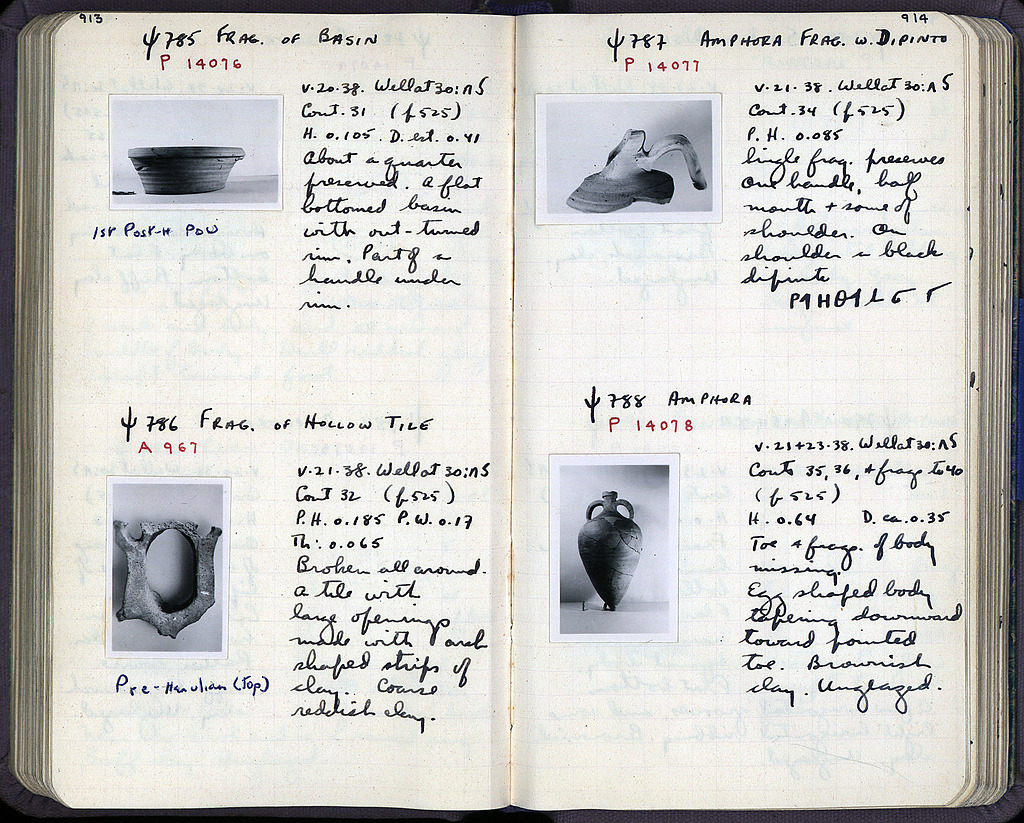 913
ψ 785 FRAG. OF BASIN
P 14076
V.20.38. Well at 30:ΛS
Cont. 31 (p 525)
H. 0.105 D. est. 0.41
About a quarter
preserved. A flat
bottomed basin
with out-turned
rim. Part of a
handle under
rim.
1st Post-H POU
ψ 786 FRAG. OF HOLLOW TILE
A 967
V.21.38. Well at 30:ΛS
Cont 32 (p 525)
P.H. 0.185 P.W. 0.17
Th: 0.065
Broken all around.
A tile with
large openings
made with arch
shaped strips of
clay. Coarse
reddish clay.
Pre-Herulian (top)
914
ψ 787 AMPHORA FRAG. W. DIPINTO
P 14077
V.21.38. Well at 30:ΛS
Cont. 34 (p 525)
P.H. 0.085
Single frag. preserves
one handle, half
mouth + some of
shoulder. On
shoulder in black
dipinto
ψ 788 AMPHORA
P 14078
V.21+23.38. Well at 30:ΛS
Conts 35, 36, + frags to 40
(p 525)
H. 0.64 D. ca. 0.35
Toe + frags. of body
missing.
Egg shaped body
tapering downward
toward pointed
toe. Brownish
clay. Unglazed.